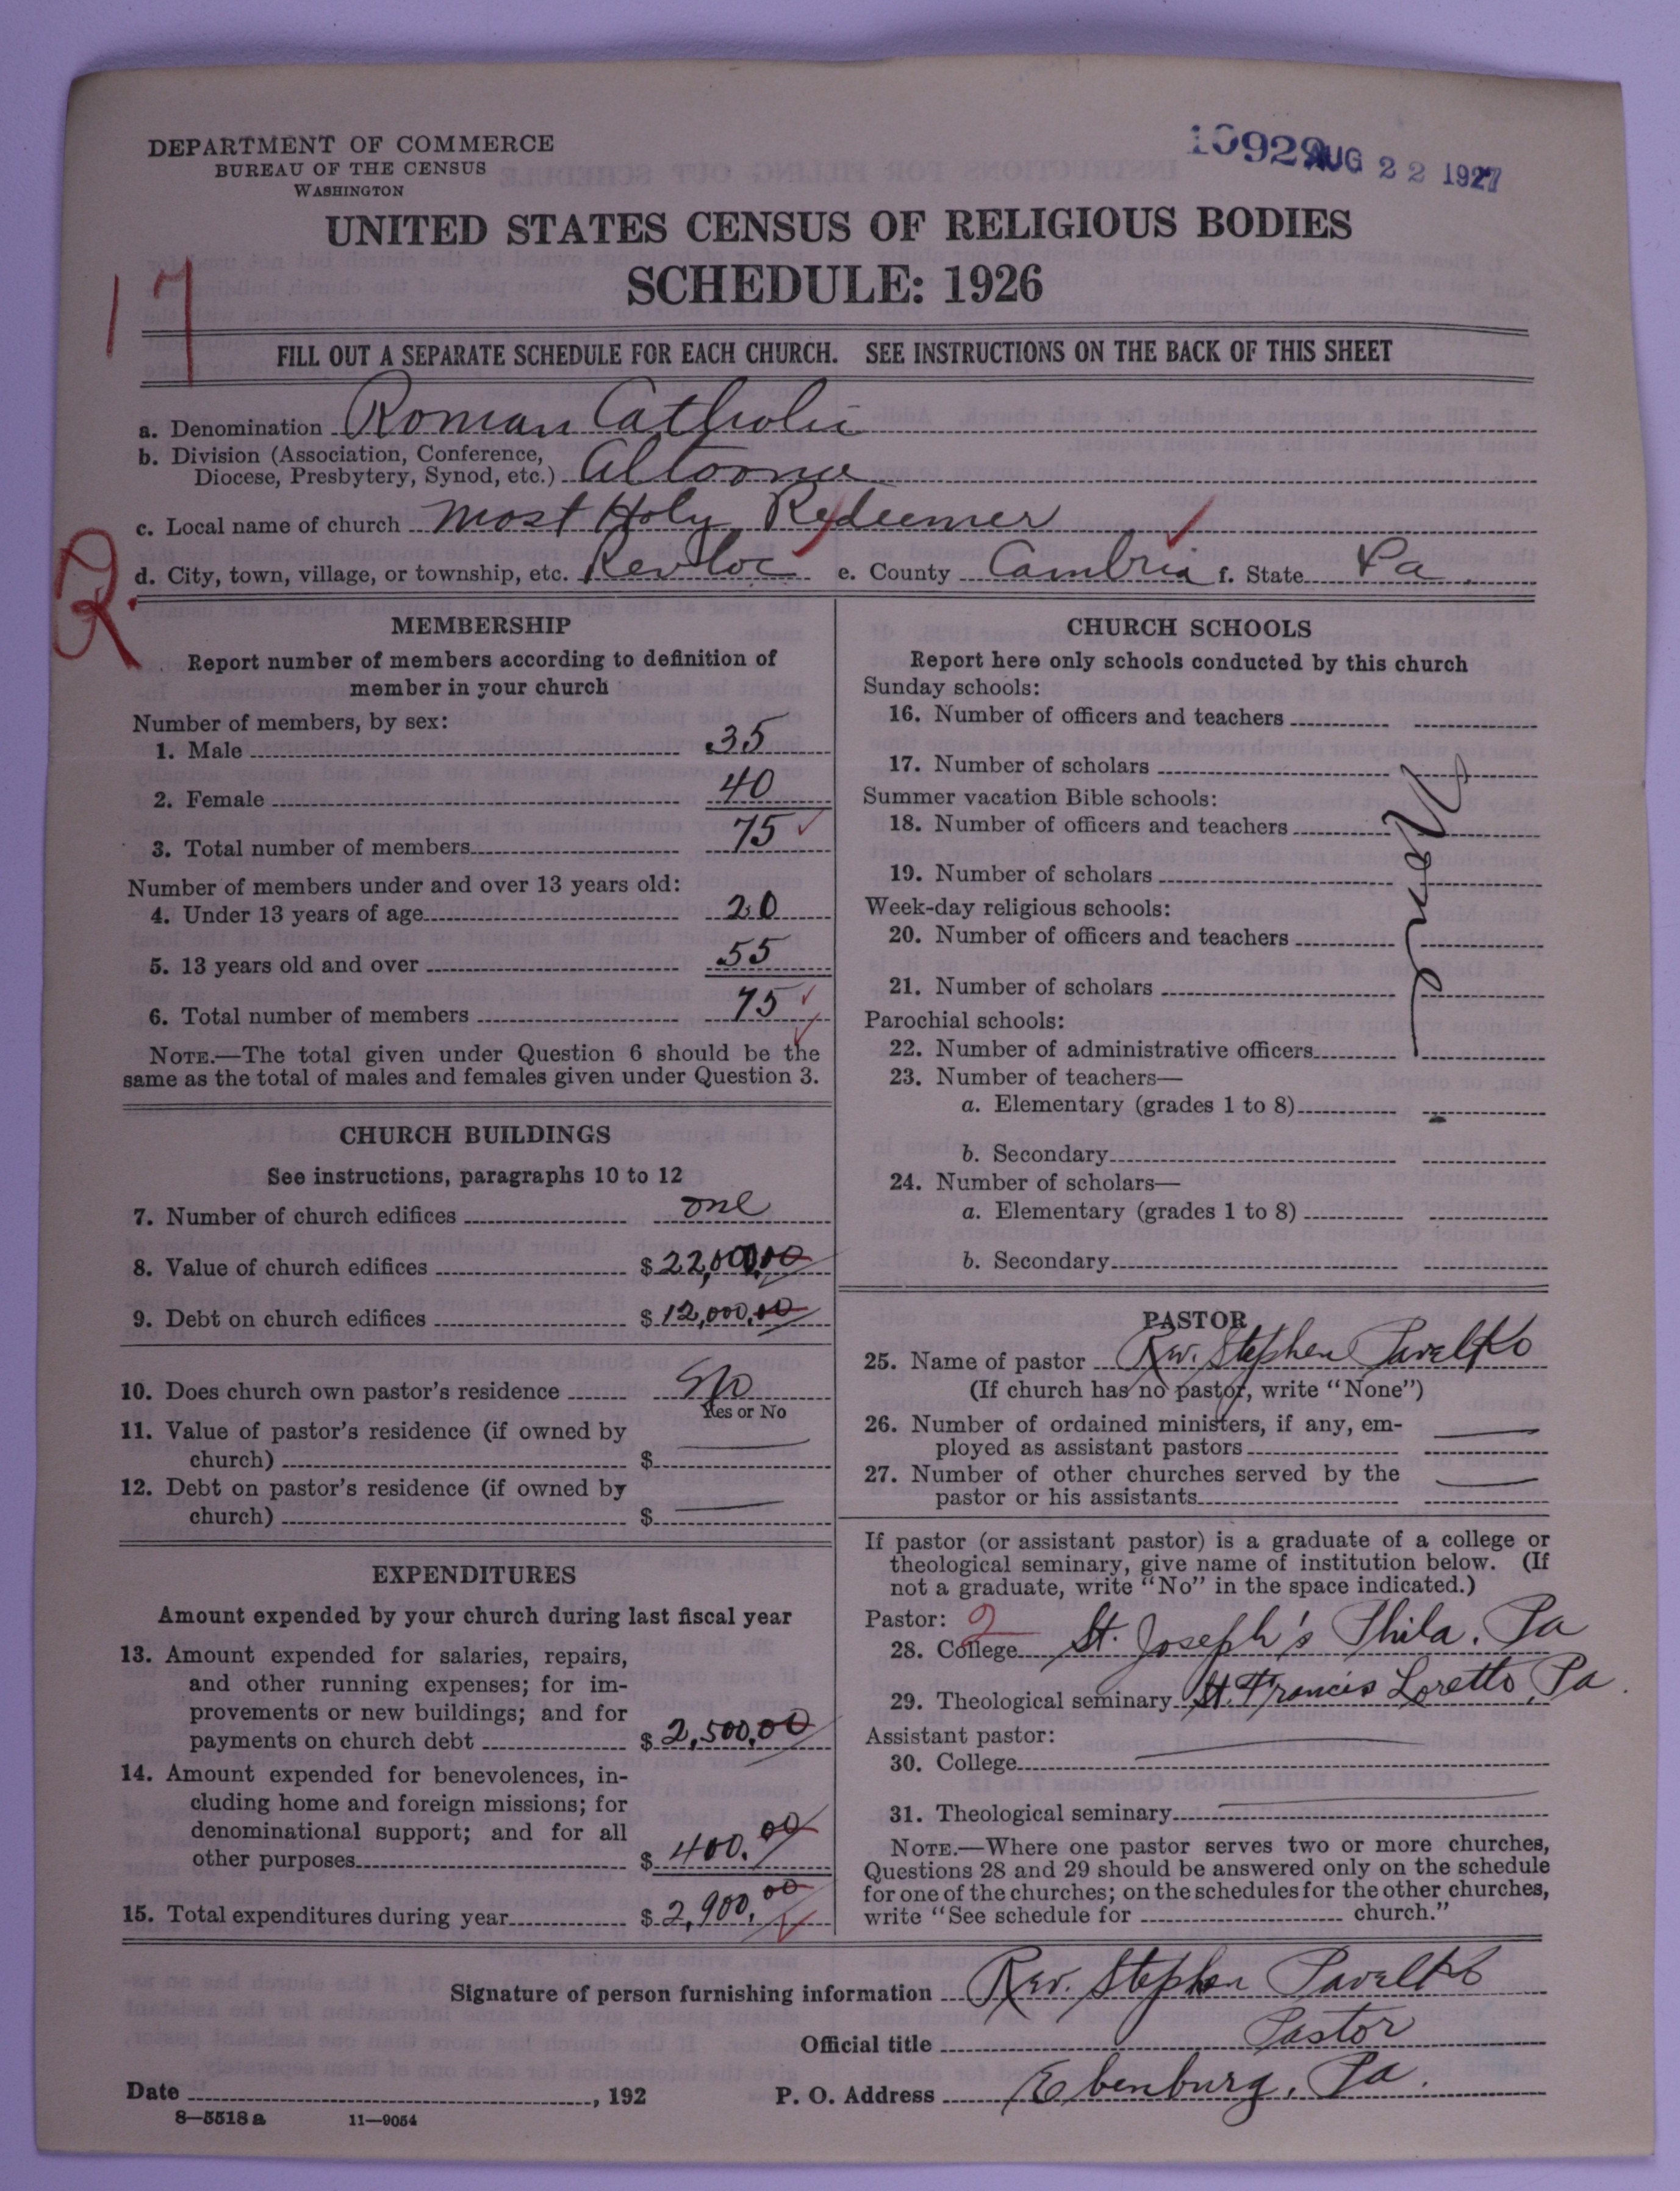 DEPARTMENT OF COMMERCE
BUREAU OF THE CENSUS
WASHINGTON
10929 AUG 22 1927
UNITED STATES CENSUS OF RELIGIOUS BODIES
SCHEDULE: 1926
17
FILL OUT A SEPARATE SCHEDULE FOR EACH CHURCH. SEE INSTRUCTIONS ON THE BACK OF THIS SHEET
a. Denomination Roman Catholic
b. Division (Association, Conference,
Diocese, Presbytery, Synod, etc.) Altoona
c. Local name of church Most Holy Redeemer
d. City, town, village, or township, etc. Revloc e. County Cambria f. State Pa.
R.
MEMBERSHIP
Report number of members according to definition of
member in your church
Number of members, by sex:
1. Male 35
2. Female 40
3. Total number of members 75
Number of members under and over 13 years old:
4. Under 13 years of age 20
5. 13 years old and over 55
6. Total number of members 75
NOTE.—The total given under Question 6 should be the
same as the total of males and females given under Question 3.
CHURCH BUILDINGS
See instructions, paragraphs 10 to 12
7. Number of church edifices one
8. Value of church edifices $ 22,000.00
9. Debt on church edifices $ 12,000.00
10. Does church own pastor's residence No
Yes or No
11. Value of pastor's residence (if owned by
church) $ —
12. Debt on pastor's residence (if owned by
church) $ —
EXPENDITURES
Amount expended by your church during last fiscal year
13. Amount expended for salaries, repairs,
and other running expenses; for im-
provements or new buildings; and for
payments on church debt $ 2,500.00
14. Amount expended for benevolences, in-
cluding home and foreign missions; for
denominational support; and for all
other purposes $ 400.00
15. Total expenditures during year $ 2,900.00
CHURCH SCHOOLS
Report here only schools conducted by this church
Sunday schools:
16. Number of officers and teachers
17. Number of scholars
Summer vacation Bible schools:
18. Number of officers and teachers
19. Number of scholars
Week-day religious schools:
20. Number of officers and teachers
21. Number of scholars
Parochial schools:
22. Number of administrative officers
23. Number of teachers—
a. Elementary (grades 1 to 8)
b. Secondary
24. Number of scholars—
a. Elementary (grades 1 to 8)
b. Secondary
PASTOR
25. Name of pastor Rev. Stephen Pavelko
(If church has no pastor, write "None")
26. Number of ordained ministers, if any, em-
ployed as assistant pastors —
27. Number of other churches served by the
pastor or his assistants —
If pastor (or assistant pastor) is a graduate of a college or
theological seminary, give name of institution below. (If
not a graduate, write "No" in the space indicated.)
Pastor: 2
28. College St. Joseph's Phila. Pa
29. Theological seminary St. Francis Loretto, Pa.
Assistant pastor:
30. College —
31. Theological seminary —
NOTE.—Where one pastor serves two or more churches,
Questions 28 and 29 should be answered only on the schedule
for one of the churches; on the schedules for the other churches,
write "See schedule for church."
Signature of person furnishing information Rev. Stephen Pavelko
Official title Pastor
Date , 192 P. O. Address Ebenburg, Pa.
8—5518 a 11—9054